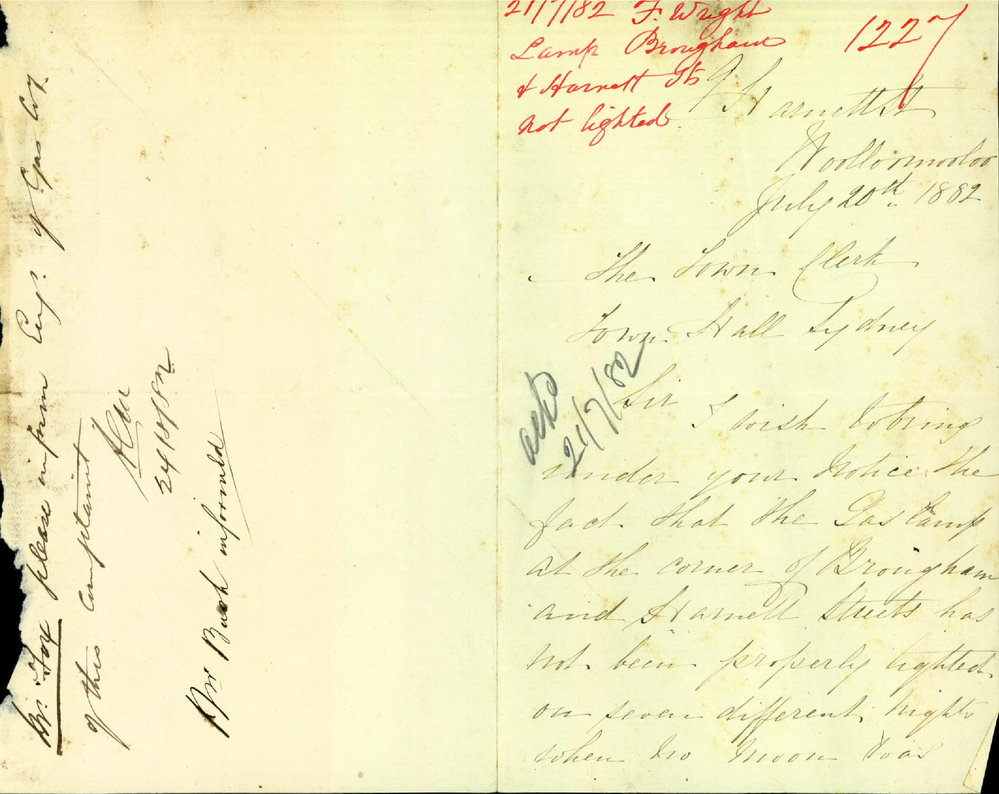 Mr. Fox please inform Eng. of Gas Coy.
of this complaint
24/8/82
Mr Bush informed
21/7/82 F. Wright
Lamp Brougham
& Harnett Sts
not lighted
1227
9 Harnett St
Woolloomooloo
July 20th 1882
The Town Clerk
Town Hall Sydney
ackd
21/7/82
Sir
I wish to bring
under your Notice the
fact that the Gas lamp
at the corner of Brougham
and Harnett Streets has
not been properly lighted
on seven different nights
when no moon was